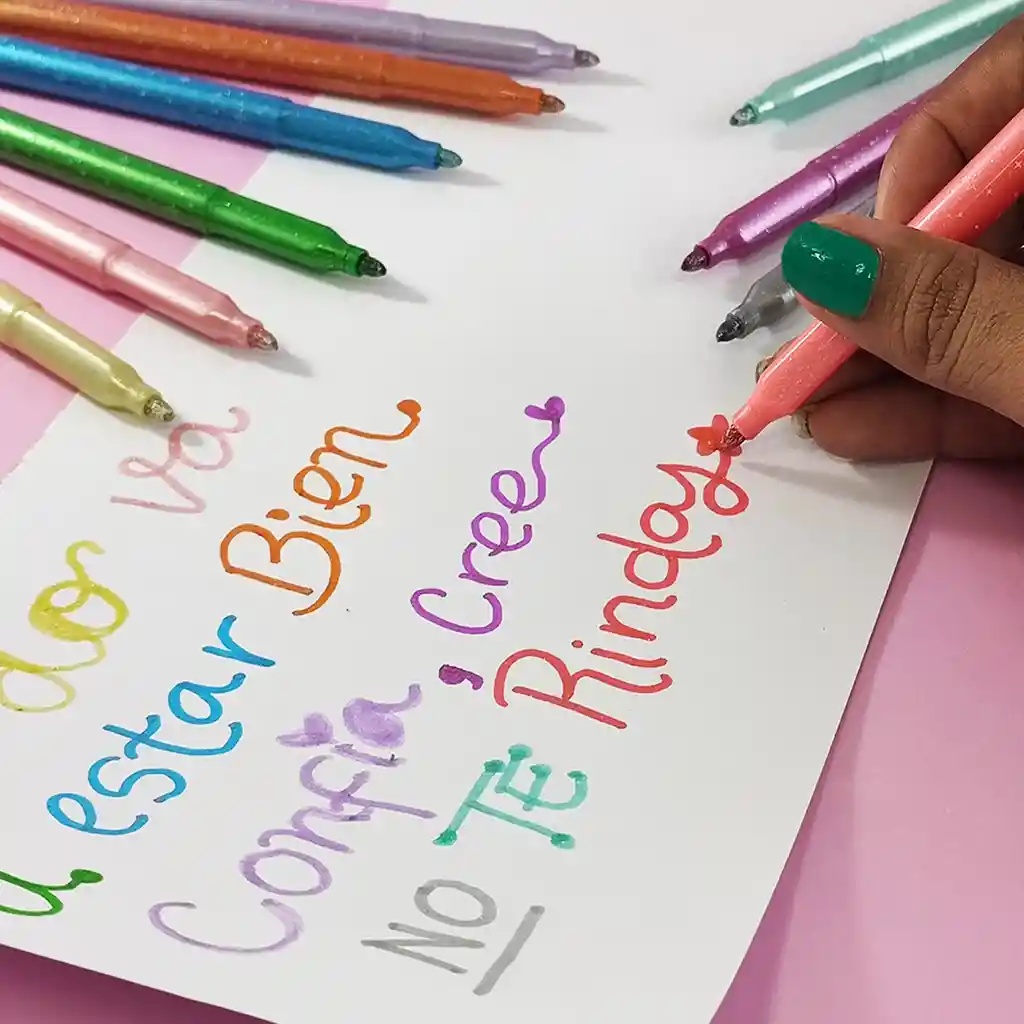 do va
a estar Bien
Confía, Cree
NO TE Rindas